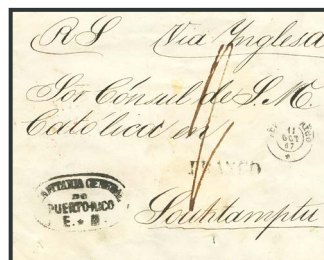 RS Via Ynglesa
Sor Cónsul de S. M.
Católica en
11
OCT
67
FRANCO
CAPITANIA GENERAL
DE
PUERTO-RICO
E. * M.
Southtamptu